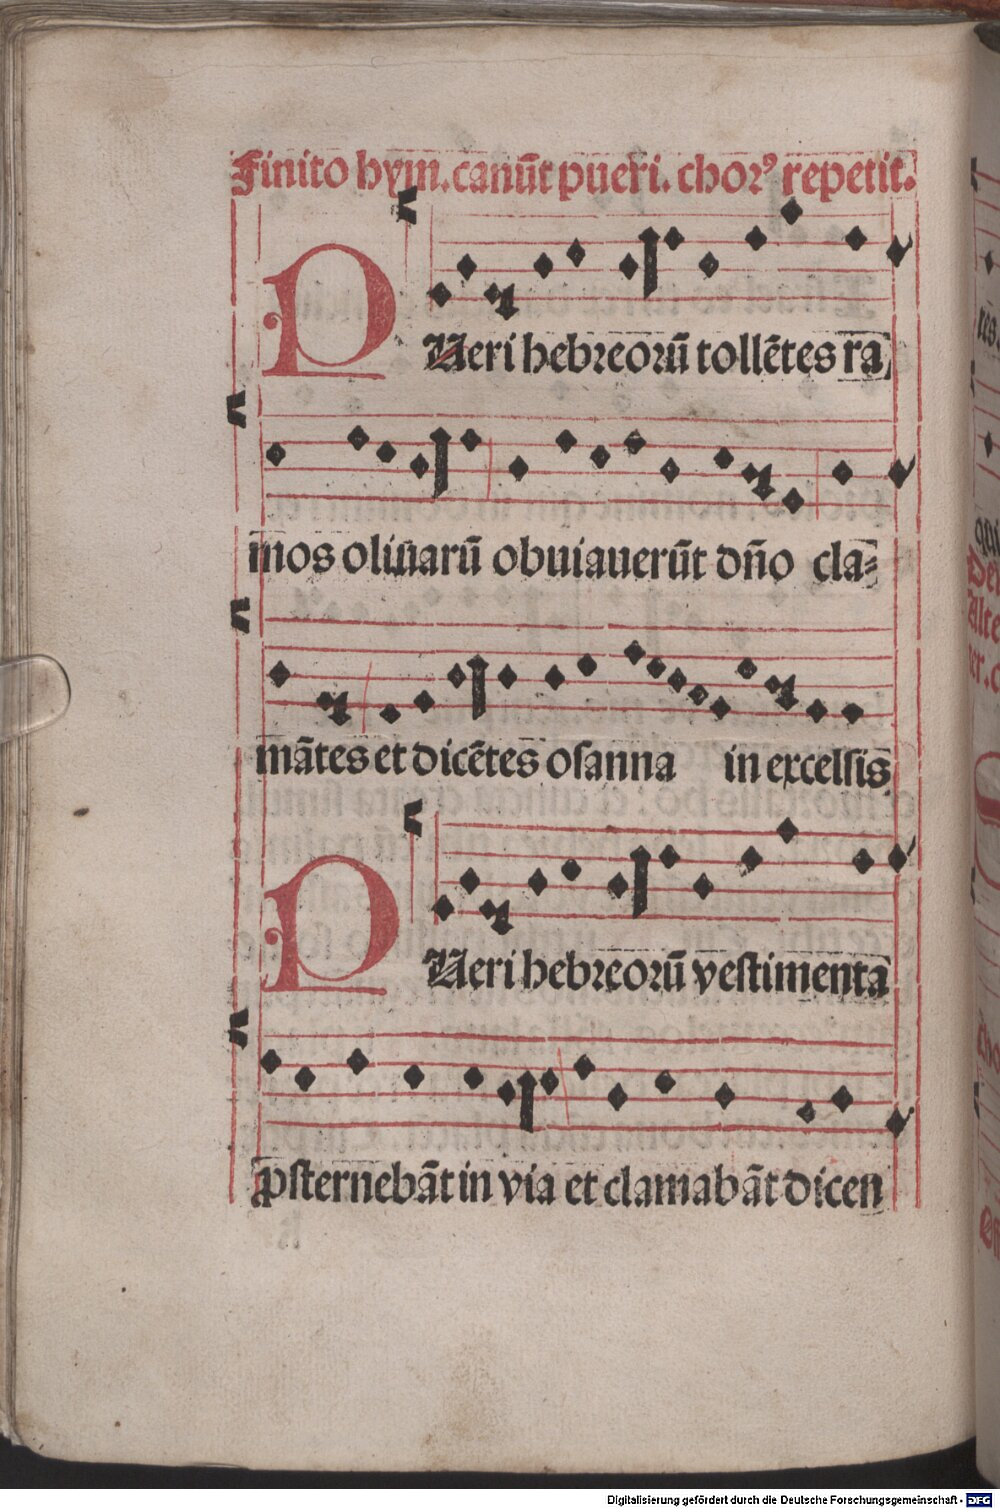 Finito hym. canūt pueri. chorꝰ repetit.
PUeri hebreorū tollētes ra
mos oliuarū obuiauerūt dño cla⸗
mātes et dicētes osanna in excelsis
PUeri hebreorū vestimenta
ꝓsternebāt in via et clamabāt dicen
Digitalisierung gefördert durch die Deutsche Forschungsgemeinschaft - DFG